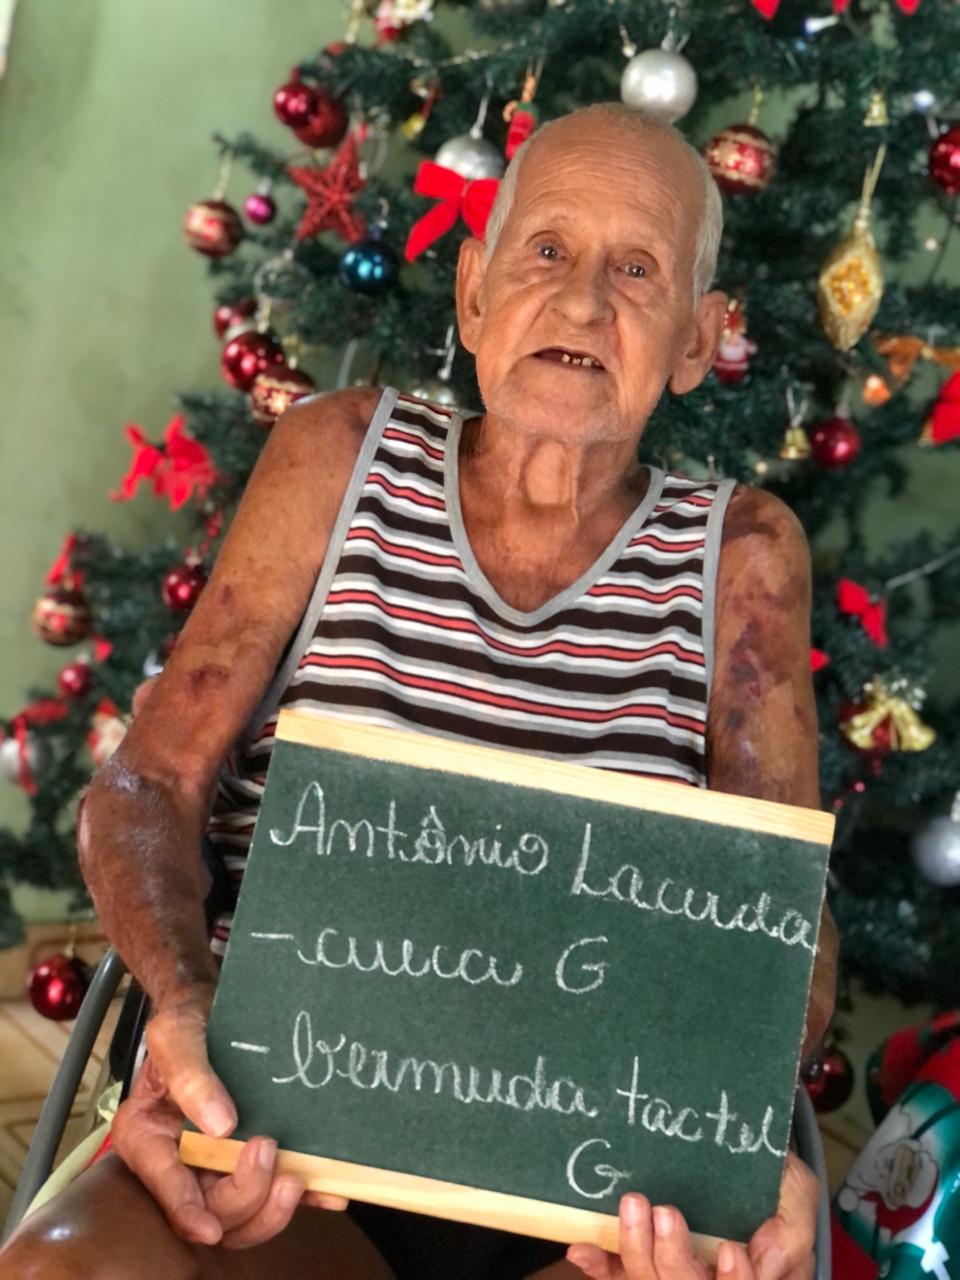 Antônio Lacerda
- cueca G
- bermuda tactel
G